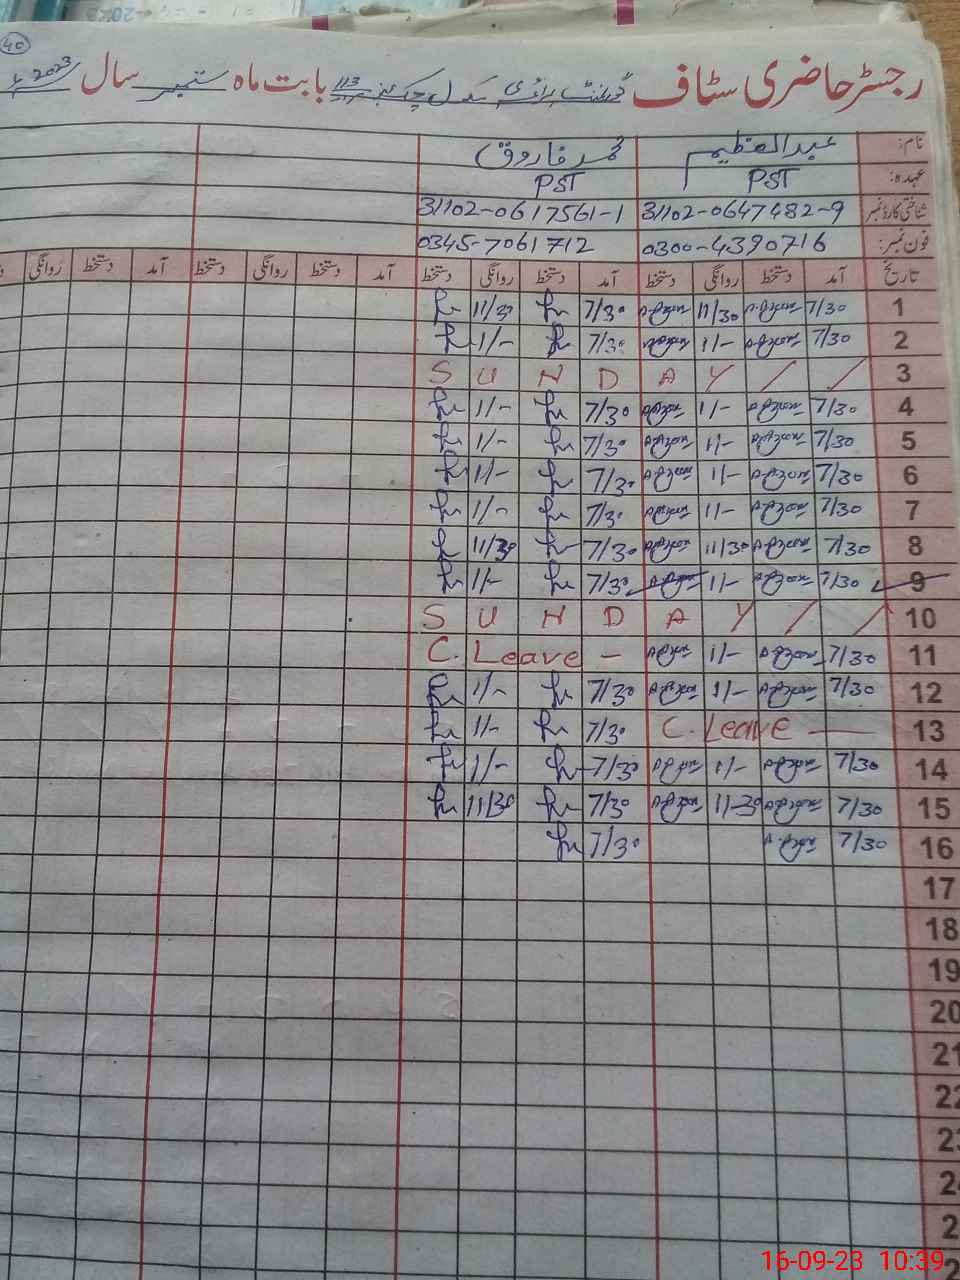 40
رجسٹر حاضری سٹاف گورنمنٹ پرائمری سکول چک نمبر 113 بابت ماہ ستمبر سال 2023ء
نام: عبدالعظیم محمد فاروق
عہدہ: PST PST
شناختی کارڈ نمبر 31102-0647482-9 31102-0617561-1
فون نمبر: 0300-4390716 0345-7061712
تاریخ آمد دستخط روانگی دستخط آمد دستخط روانگی دستخط آمد دستخط روانگی دستخط آمد دستخط روانگی
1 7/30 11/30 7/30 11/30
2 7/30 1/- 7/30 1/-
3 S U N D A Y / /
4 7/30 1/- 7/30 1/-
5 7/30 1/- 7/30 1/-
6 7/30 1/- 7/30 1/-
7 7/30 1/- 7/30 1/-
8 7/30 11/30 7/30 11/30
9 7/30 1/- 7/30 1/-
10 S U N D A Y / /
11 7/30 1/- C. Leave -
12 7/30 1/- 7/30 1/-
13 C. Leave — 7/30 1/-
14 7/30 1/- 7/30 1/-
15 7/30 11-30 7/30 11/30
16 7/30 7/30
17
18
19
20
21
22
16-09-23 10:39